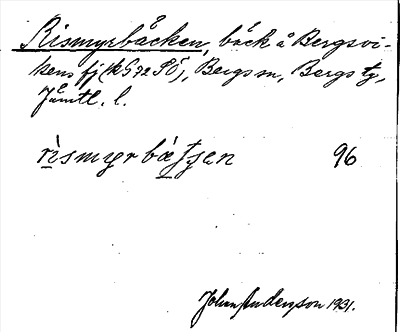 Rismyrbäcken, bäck å Bergsvi-
kens fj (k S 72 SÖ), Bergs sn, Bergs tg,
Jämtl. l.
rìsmyr bæ̀tʃen 96
Johan Andersson 1931.